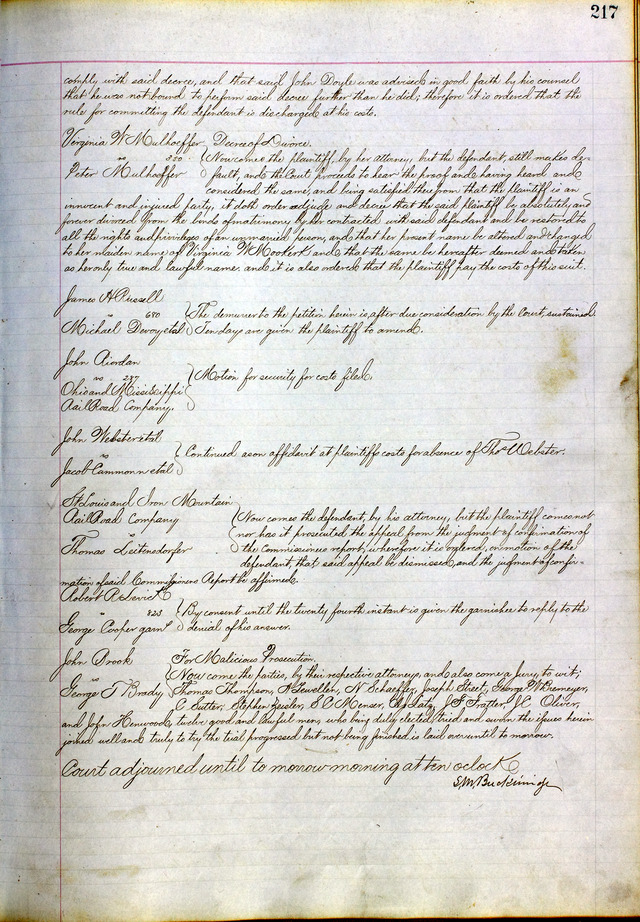 217
comply with said decree, and that said John Doyle was advised in good faith by his counsel
that he was not bound to perform said decree further than he did; therefore it is ordered that the
rule for committing the defendant is discharged at his costs.
Virginia W Mulhoeffer Decree of Divorce.
vs 220 Now comes the plaintiff, by her attorney, but the defendant, still makes de-
Peter Mulhoeffer fault, and the Court proceeds to hear the proof and having heard and
considered the same, and being satisfied therefrom that the plaintiff is an
innocent and injured party, it doth order adjudge and decree that the said plaintiff be absolutely and
forever divorced from the bonds of matrimony by her contracted with said defendant and be restored to
all the rights and privileges of an unmarried person, and that her present name be altered and changed
to her maiden name of Virginia W and that the same be hereafter deemed and taken
as her only true and lawful name and it is also ordered that the plaintiff pay the costs of this suit.
James H Russell
vs 680 The demurrer to the petition herein is, after due consideration by the Court, sustained.
Michael Devoy et al Ten days are given the plaintiff to amend.
John Riordan
vs 237 Motion for security for costs filed.
Ohio and Mississippi
Rail Road Company.
John Webster et al
vs Continued as on affidavit at plaintiffs costs for absence of Thos Webster.
Jacob Cammonn et al
St Louis and Iron Mountain
Rail Road Company Now comes the defendant, by his attorney, but the plaintiff comes not
vs nor has it prosecuted the appeal from the judgment of confirmation of
Thomas Leitensdorfer the Commissioners report, wherefore it is ordered, on motion of the
defendant, that said appeal be dismissed, and the judgment of confir-
mation of said Commissioners Report be affirmed.
Robert A
vs 823 By consent until the twenty fourth instant is given the garnishee to reply to the
George Cooper garn denial of his answer.
John Brook For Malicious Prosecution
vs Now come the parties, by their respective attorneys, and also come a Jury, to wit;
George T Brady Thomas Thompson, A Lewellen, N Schaeffer, Joseph Street, George W
C Sutter, Stephen S C Menser, J F Oliver,
and John Henwood, twelve good and lawful men, who being duly elected, tried and sworn the issues herein
joined well and truly to try the trial progressed but not being finished is laid over until to morrow.
Court adjourned until to morrow morning at ten oclock